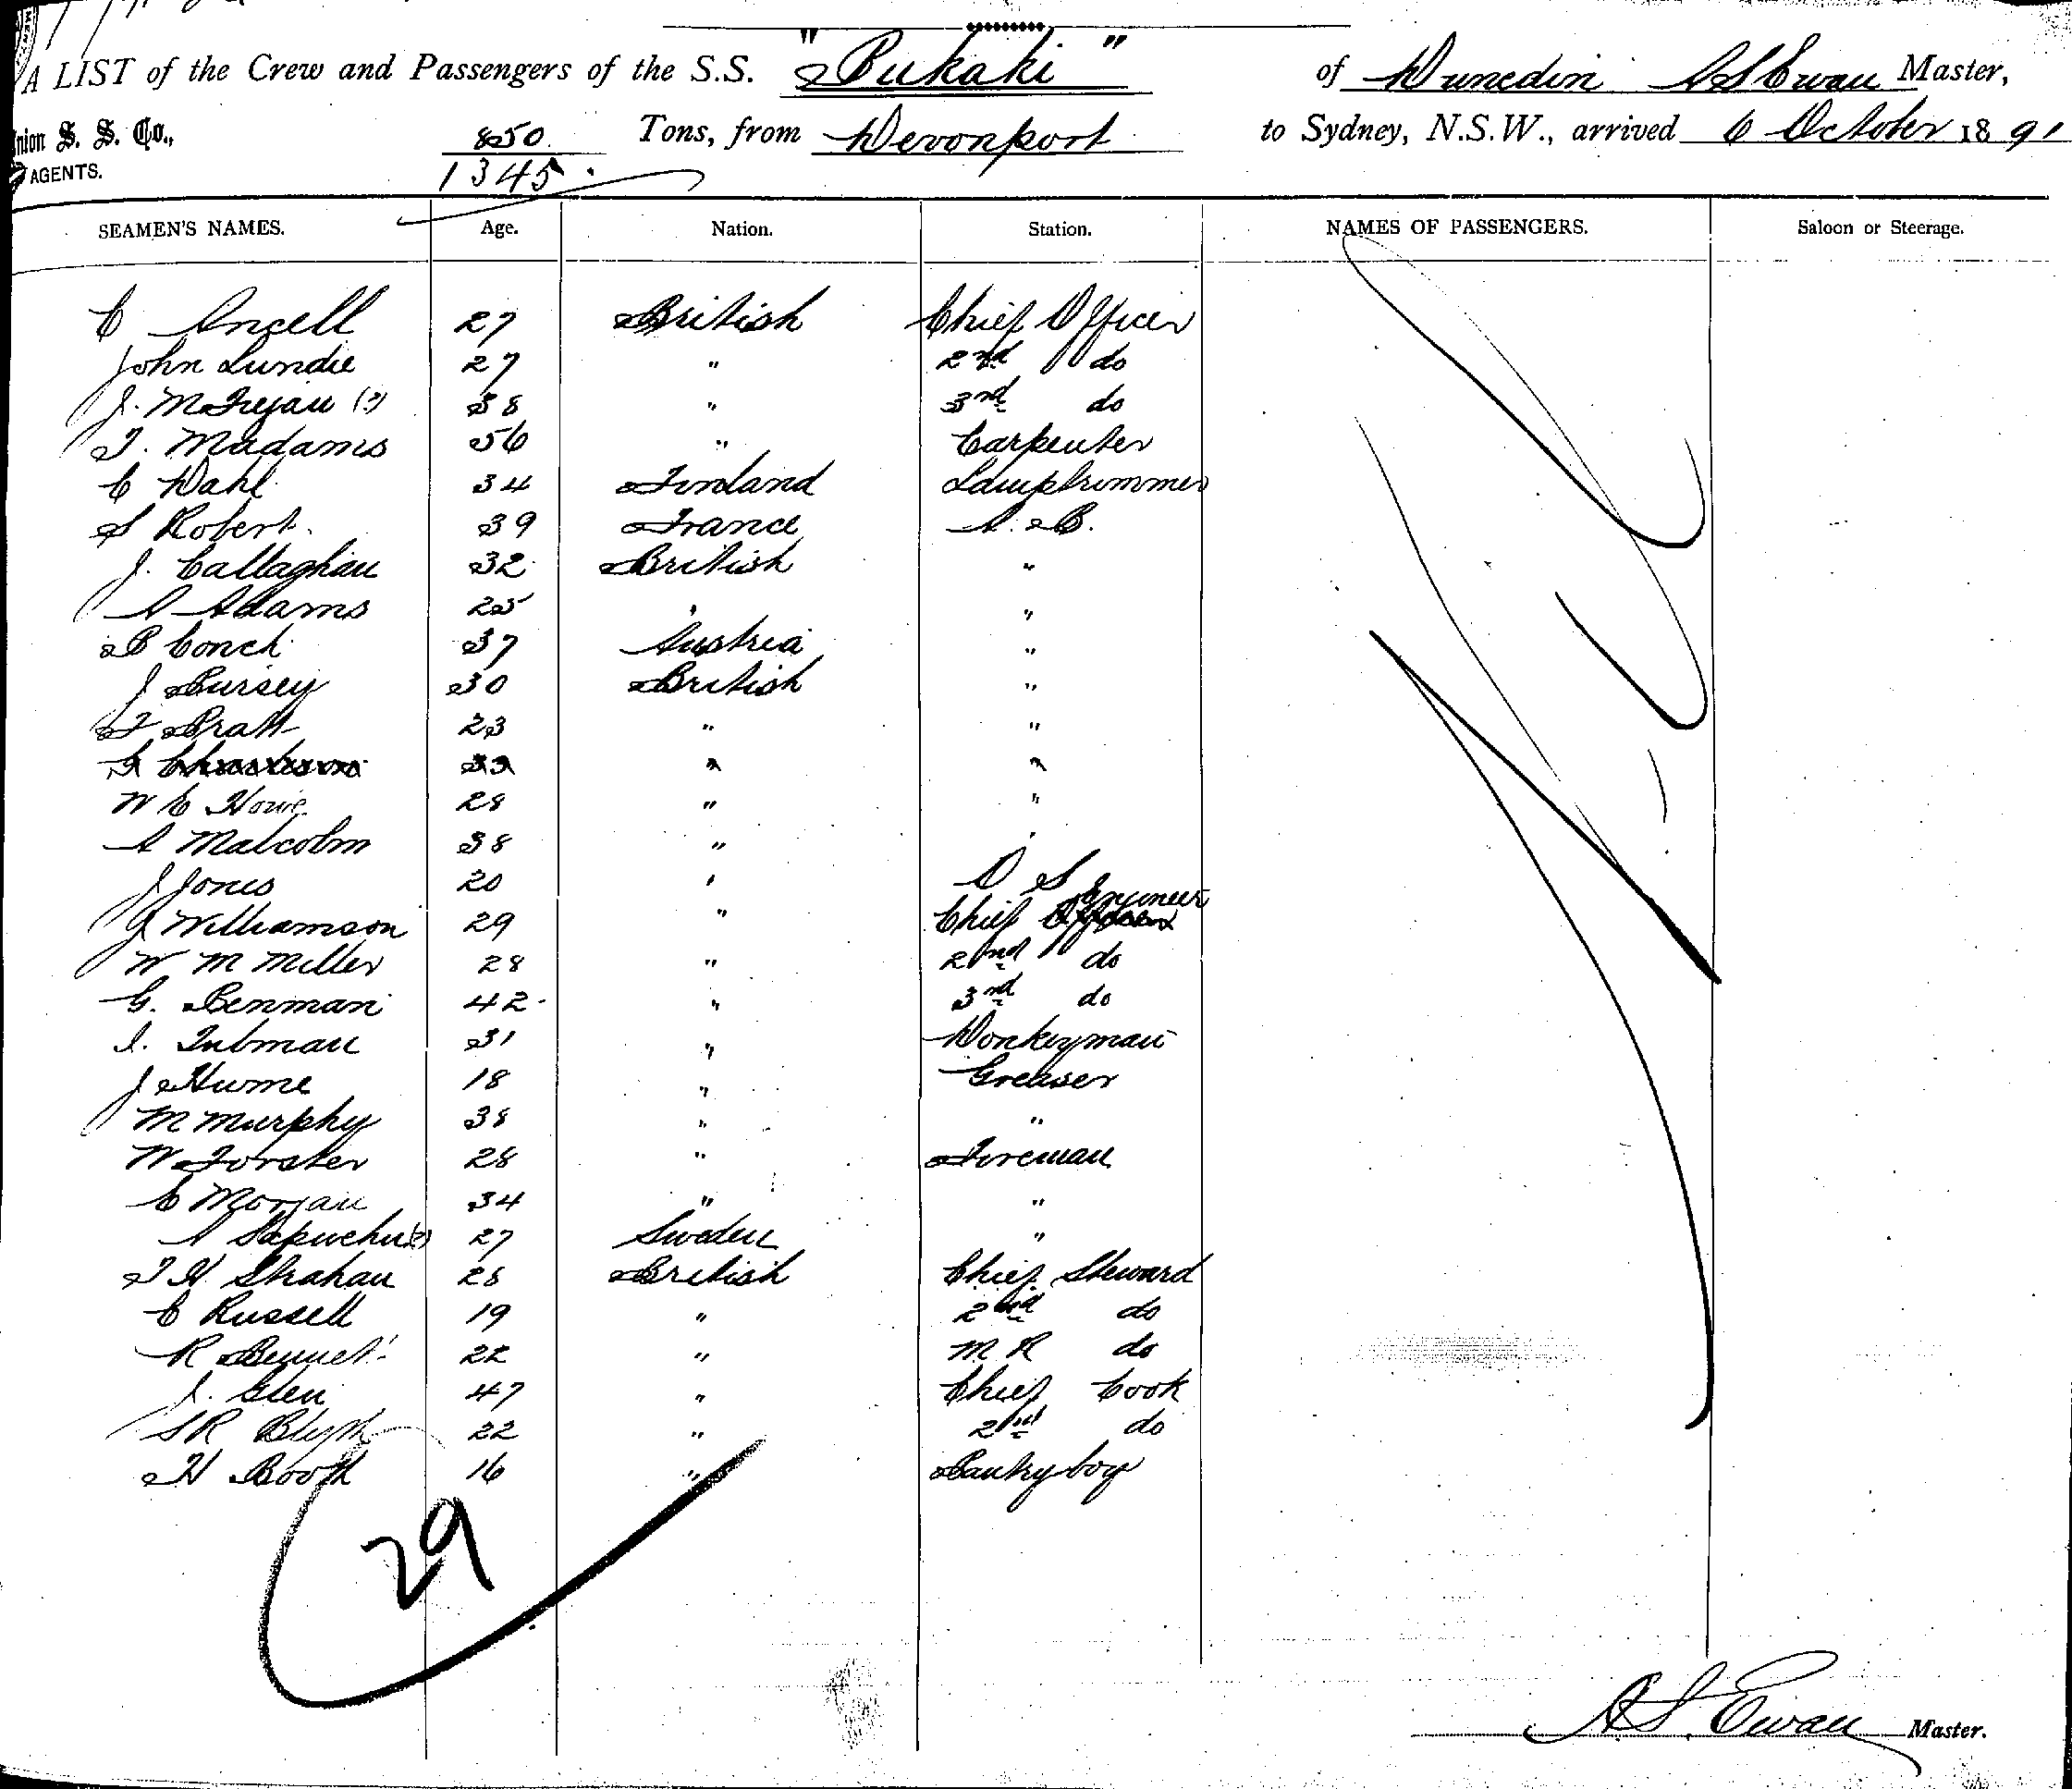 A LIST of the Crew and Passengers of the S.S. "Pukaki" of Dunedin A S Ewan Master,
Union S. S. Co., AGENTS. 850 Tons, from Devonport to Sydney, N.S.W., arrived 6 October 1891
1345.
SEAMEN'S NAMES. Age. Nation. Station. NAMES OF PASSENGERS. Saloon or Steerage.
C Ansell 27 British Chief Officer
John Lundie 27 " 2nd do
J. (?) 38 " 3rd do
T. Madams 56 " Carpenter
C Dahl 34 Finland Lamptrimmer
S Robert 39 France A.B.
J. Callaghan 32 British "
A Adams 25 " "
B Conch 37 Austria "
J Bursey 30 British "
F Pratt 23 " "
33 " "
W C Howe 28 " "
A Malcolm 38 "
J Jones 20 " O S
J Williamson 29 " Chief Officer Engineer
W M Miller 28 " 2nd do
G. Penman 42 " 3rd do
I. Tubman 31 " Donkeyman
J Hume 18 " Greaser
M Murphy 38 " "
W Forster 28 " Fireman
C Morgan 34 " "
A (?) 27 Sweden "
T H. Strahan 28 British Chief Steward
C Russell 19 " 2nd do
R Bennet 22 " M R do
J. Glen 47 " Chief Cook
S R Blyth 22 " 2nd do
H Booth 16 " Pantry boy
29
A S. Ewan Master.